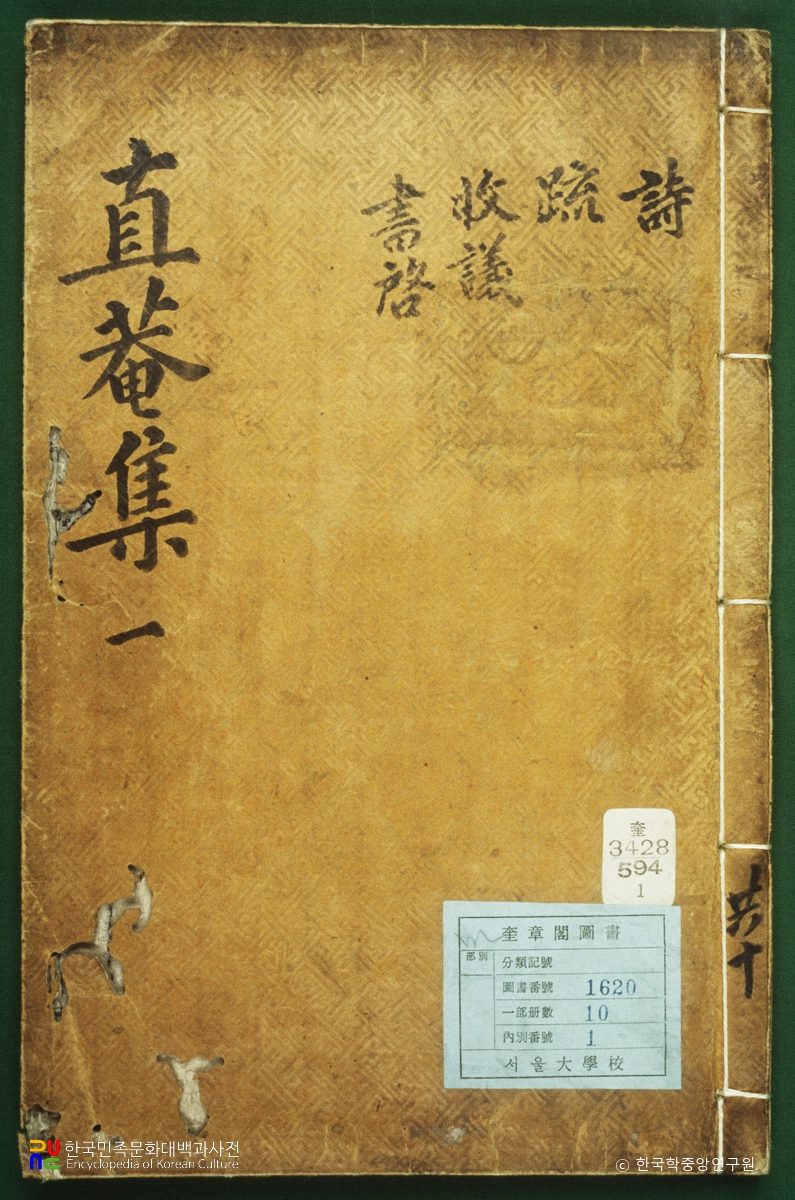 直菴集 一
詩
疏
收議
書啓
共十
奎
3428
594
1
奎章閣圖書
部別
分類記號
圖書番號 1620
一部册數 10
內別番號 1
서울大學校
한국민족문화대백과사전
Encyclopedia of Korean Culture
ⓒ 한국학중앙연구원